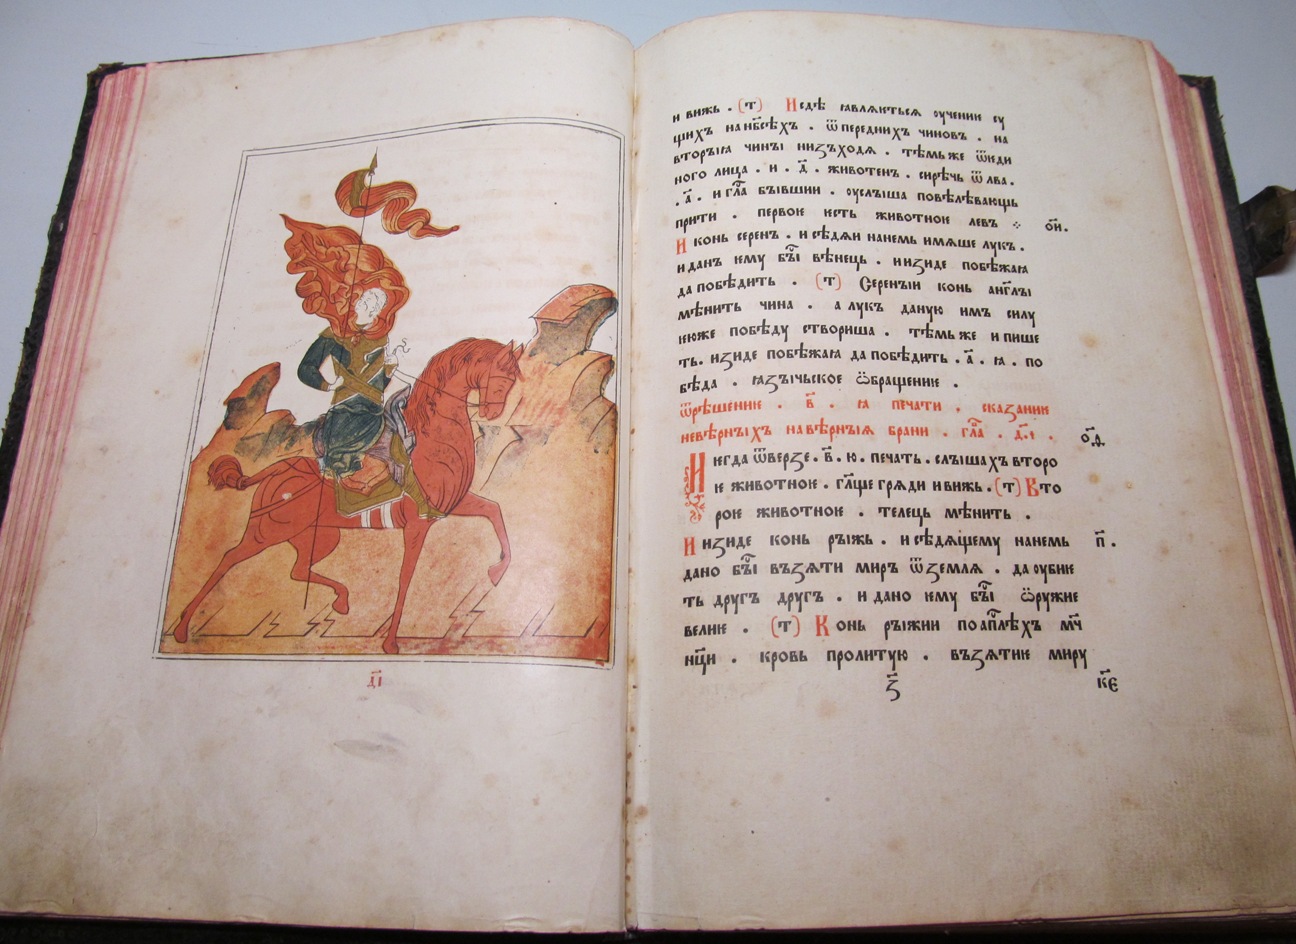 и вижь . (т) И сдѣ ꙗвлѧютьсѧ ѹчение сѹ
щихъ на нб҃сѣхъ . ѿ переднихъ чиновъ . на
вторыꙗ чины низъходѧ . тѣмьже ѿ єди
ного лица . и . д҃ . животен . сирѣчь ѿ лва .
. а҃ . и гл҃а бывшии . ѹслыша повѣлѣвающь
прити . первоє єсть животноє левъ ⁘ ѻ҃и .
И конь серен . и сѣдѧи на немь имѧше лукъ .
и данъ єму бы҃ вѣнець . и изиде побѣжаꙗ
да побѣдить . (т) Серены конь анг҃лы
мѣнить чина . а лукъ даную имъ силу
єюже побѣду створиша . тѣмь же и пише
ть . изиде побѣжаꙗ да побѣдить . а҃ . ꙗ . по
бѣда . ꙗзычьскоє ѡбращениє .
ѿрѣшениє . в҃ . ꙗ печати . сказаниє
невѣрныхъ на вѣрныꙗ брани . гл҃а . д҃ι . ѻ҃д
И єгда ѿверзе . в҃ . ю . печать . слышахъ второ
є животноє . гл҃ще грѧди и вижь . (т) Вто
роє животноє . телець мѣнить .
И изиде конь рыжь . и сѣдѧщему на немь п҃ .
дано бы҃ възѧти миръ ѿ землѧ . да ѹбиє
ть другъ друга . и дано єму бы҃ ѡружиє
велиє . (т) Конь рыжии по ап҃лѣхъ мч҃
нц҃и . кровь пролитую . възѧтиє миру
з҃ к҃є
д҃і